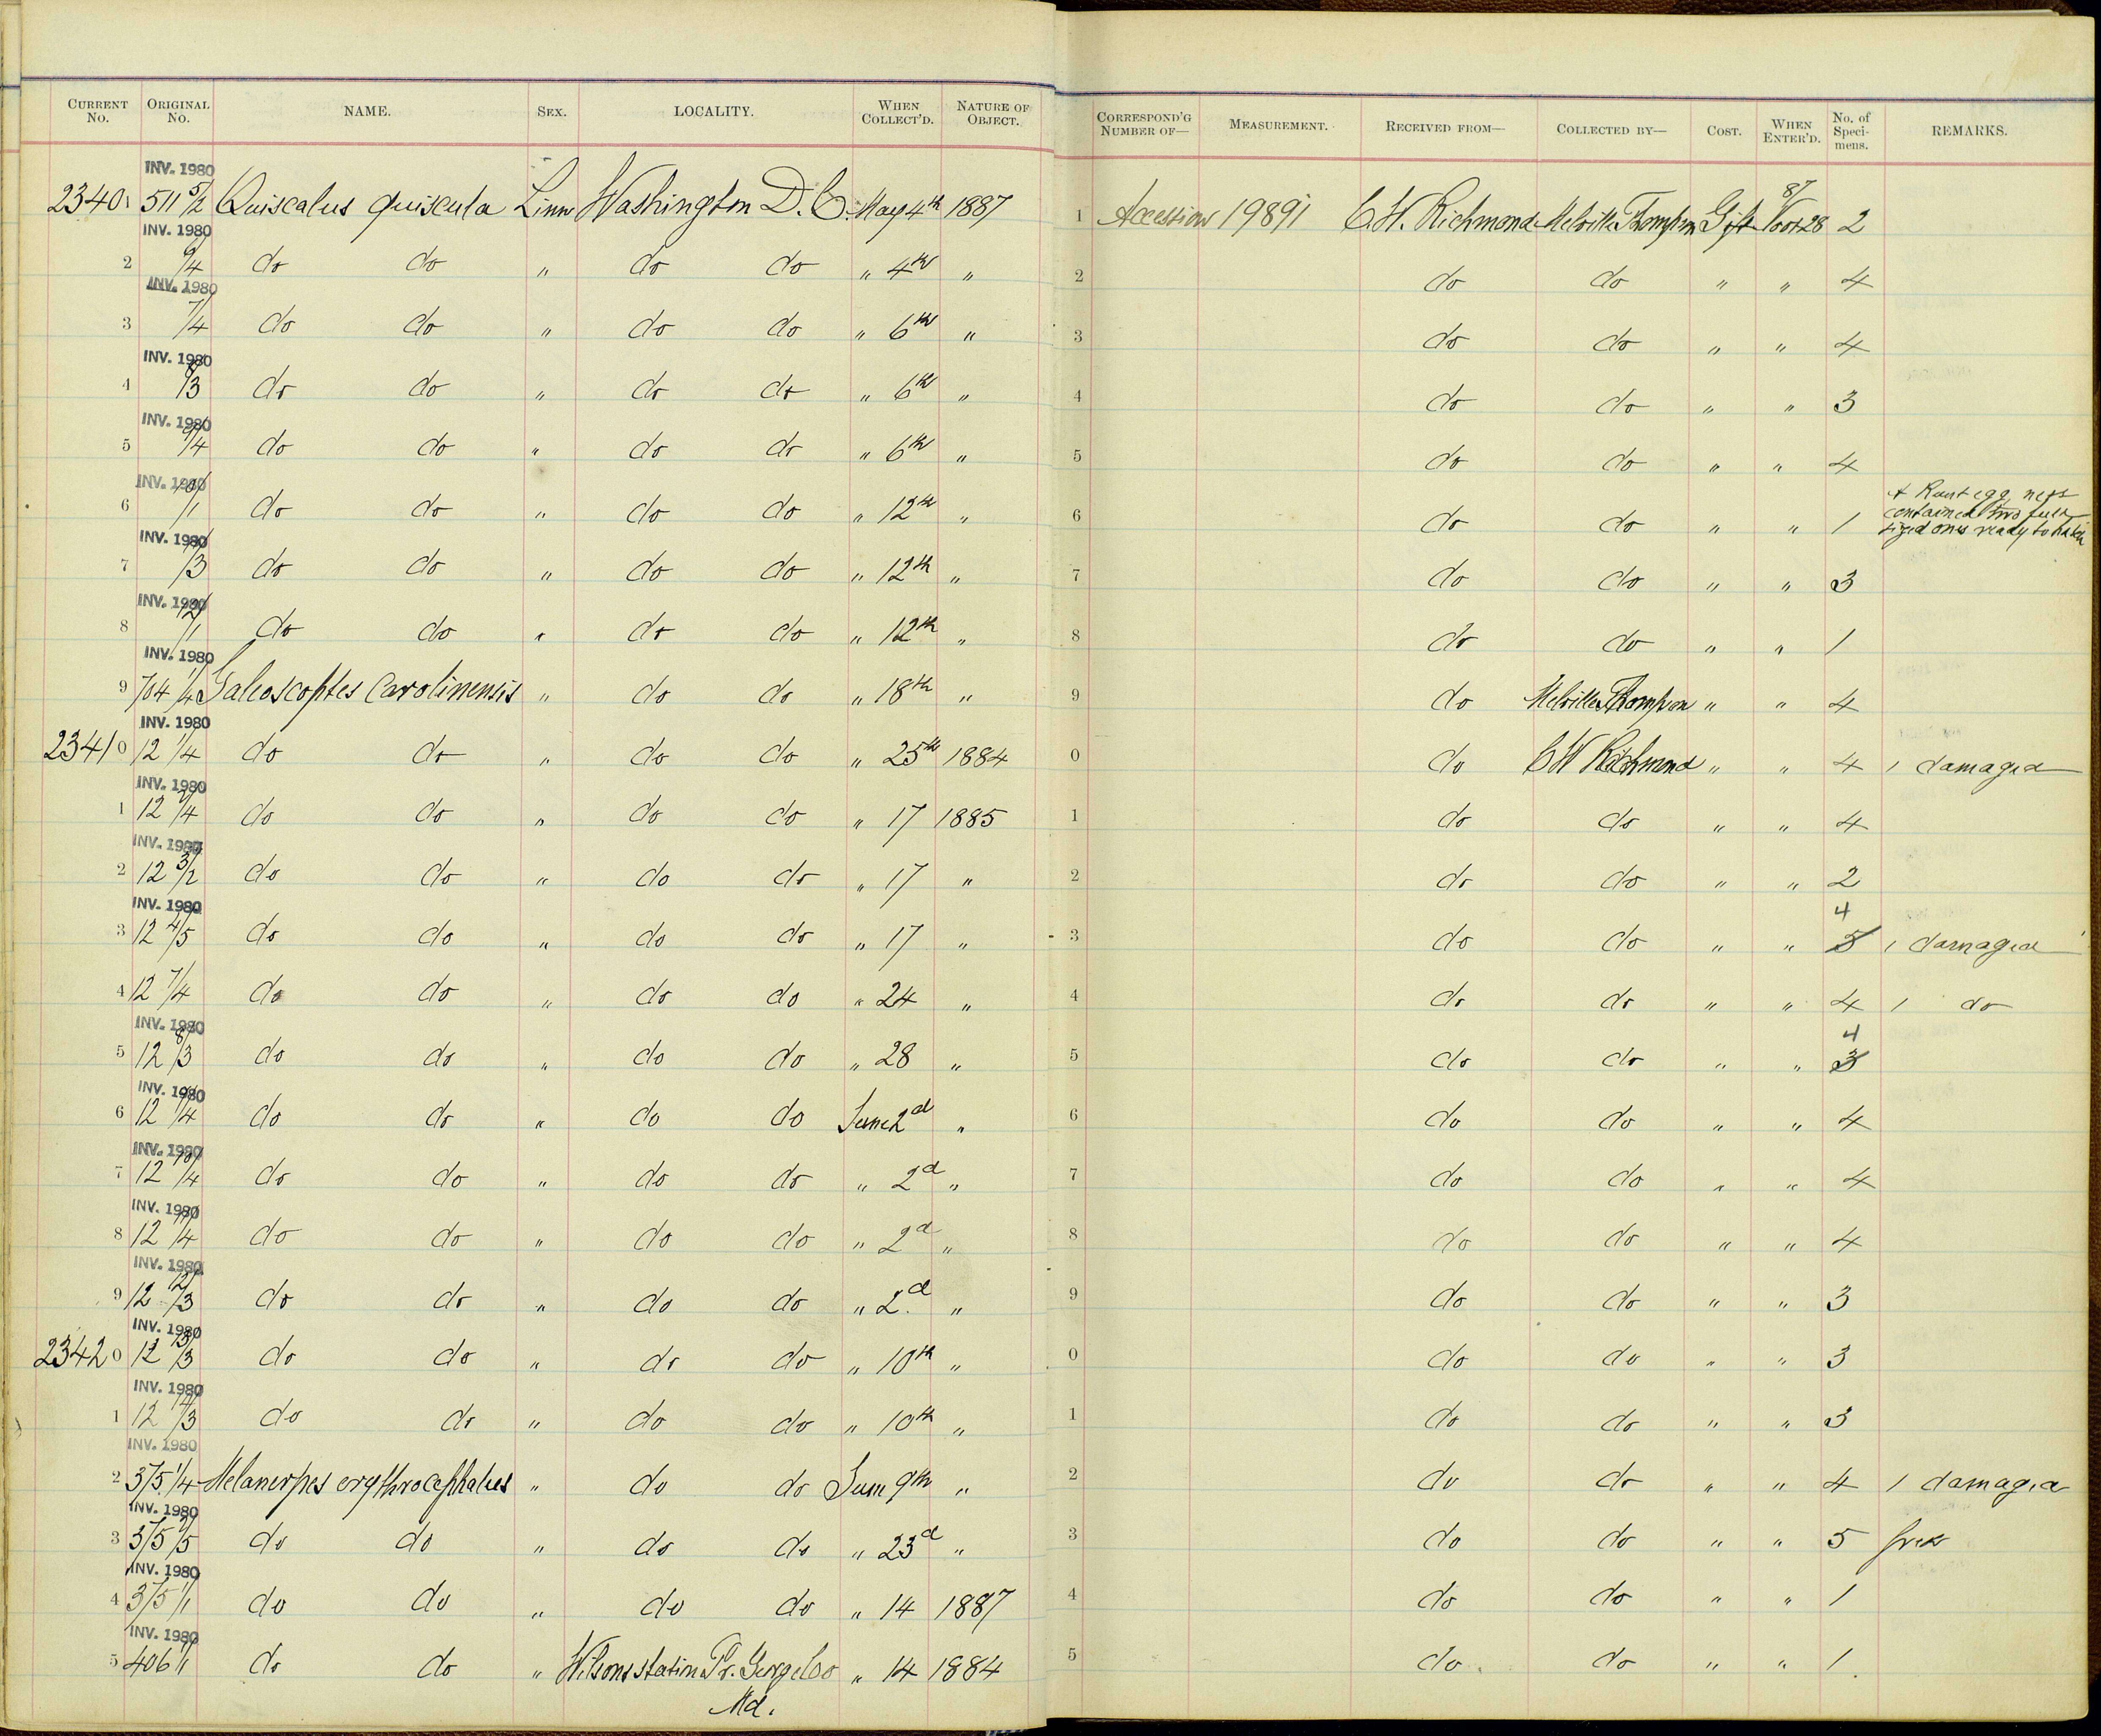 CURRENT No. ORIGINAL No. NAME. SEX. LOCALITY. WHEN COLLECT'D. NATURE OF OBJECT. CORRESPOND'G NUMBER OF— MEASUREMENT. RECEIVED FROM— COLLECTED BY— COST. WHEN ENTER'D. No. of Speci-mens. REMARKS.
INV. 1980
23401 511 5/2 Quiscalus quiscula Linn Washington D.C. May 4th 1887 1 Accession 19891 C.W. Richmond Melville Thompson Gift 87 Oct 28 2
INV. 1980
2 6/4 do do " do do " 4th " 2 do do " " 4
INV. 1980
3 7/4 do do " do do " 6th " 3 do do " " 4
INV. 1980
4 8/3 do do " do do " 6th " 4 do do " " 3
INV. 1980
5 9/4 do do " do do " 6th " 5 do do " " 4
INV. 1980
6 10/1 do do " do do " 12th " 6 do do " " 1 A Runt egg nest contained two full sized ones ready to hatch
INV. 1980
7 11/3 do do " do do " 12th " 7 do do " " 3
INV. 1980
8 12/1 do do " do do " 12th " 8 do do " " 1
INV. 1980
9 704 1/4 Galeoscoptes Carolinensis " do do " 18th " 9 do Melville Thompson " " 4
INV. 1980
23410 12 1/4 do do " do do " 25th 1884 0 do C W Richmond " " 4 1 damaged
INV. 1980
1 12 2/4 do do " do do " 17 1885 1 do do " " 4
INV. 1980
2 12 3/2 do do " do do " 17 " 2 do do " " 2
INV. 1980
3 12 4/5 do do " do do " 17 " 3 do do " " 5 4 1 damaged
4 12 7/4 do do " do do " 24 " 4 do do " " 4 1 do
INV. 1980
5 12 8/3 do do " do do " 28 " 5 do do " " 3 4
INV. 1980
6 12 9/4 do do " do do June 2d " 6 do do " " 4
INV. 1980
7 12 10/4 do do " do do " 2d " 7 do do " " 4
INV. 1980
8 12 11/4 do do " do do " 2d " 8 do do " " 4
INV. 1980
9 12 12/3 do do " do do " 2d " 9 do do " " 3
INV. 1980
23420 12 13/3 do do " do do " 10th " 0 do do " " 3
INV. 1980
1 12 14/3 do do " do do " 10th " 1 do do " " 3
INV. 1980
2 375 1/4 Melanerpes erythrocephalus " do do June 9th " 2 do do " " 4 1 damaged
INV. 1980
3 375 2/5 do do " do do " 23d " 3 do do " " 5
INV. 1980
4 375 1/1 do do " do do " 14 1887 4 do do " " 1
INV. 1980
5 406 1/1 do do " Wilsons station Pr. George Co " 14 1884 5 do do " " 1
Md.